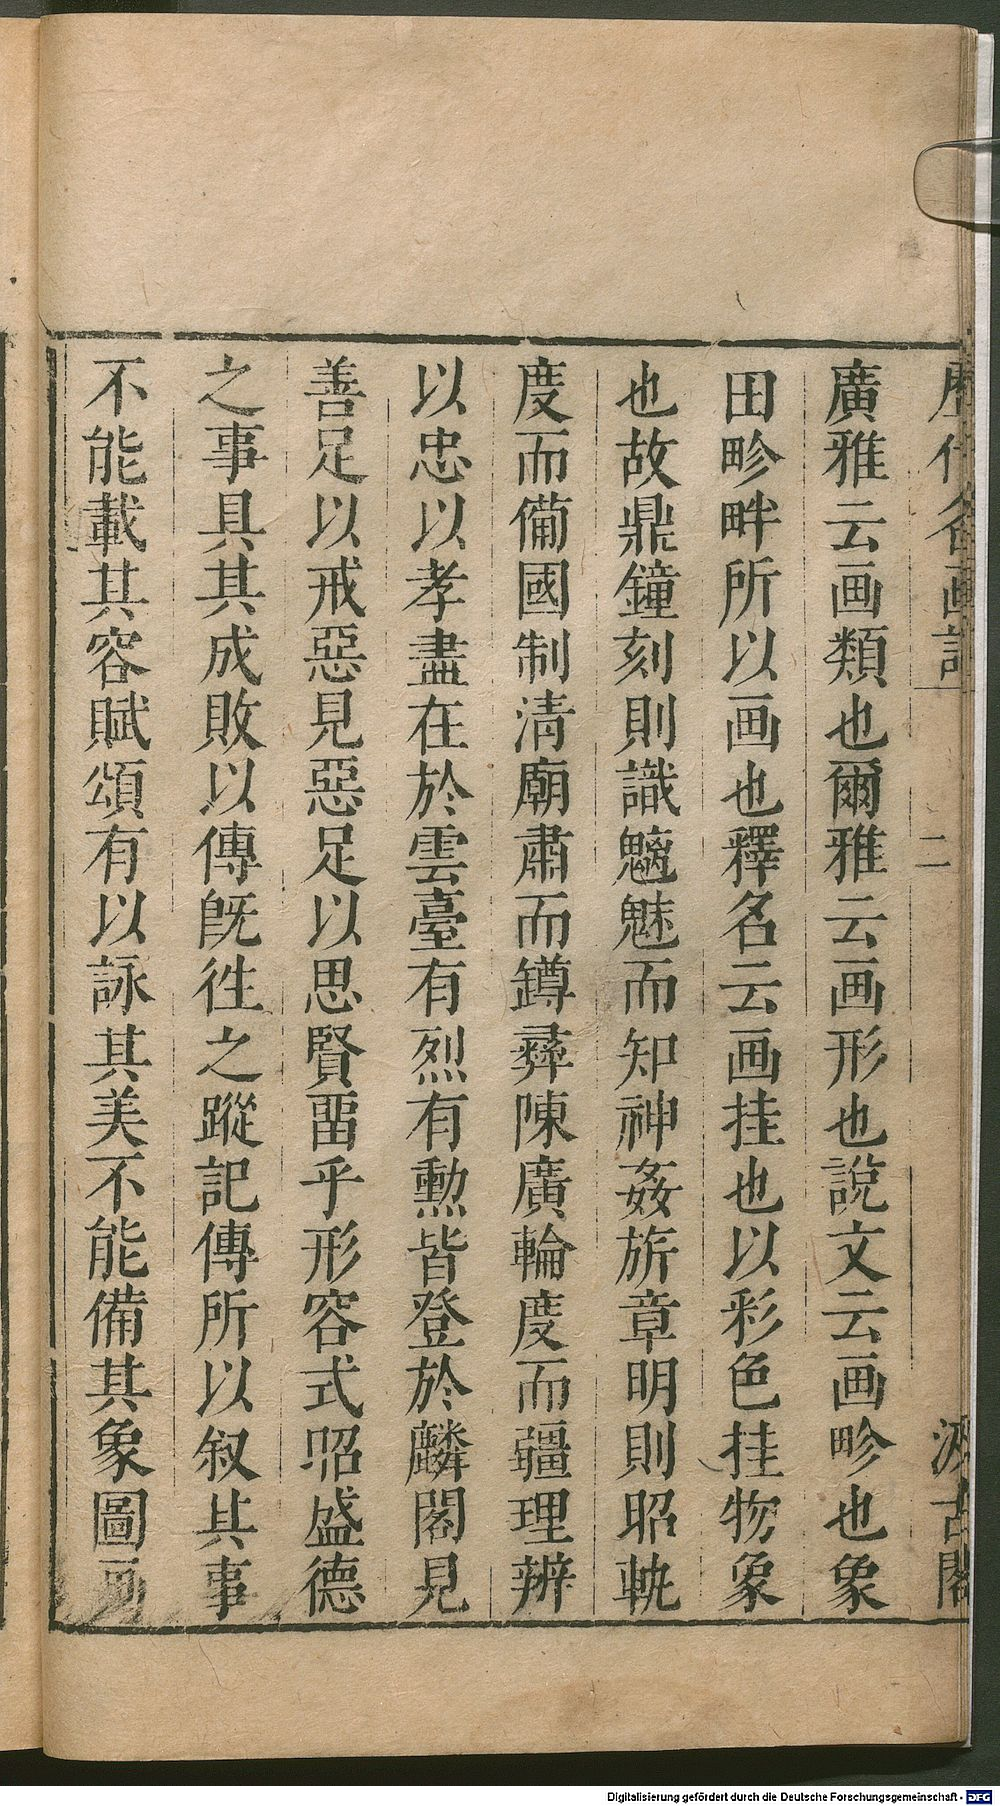 歷代名画記
二
汲古閣
廣雅云画類也爾雅云画形也說文云画畛也象
田畛畔所以画也釋名云画挂也以彩色挂物象
也故鼎鐘刻則識魑魅而知神姦旂章明則昭軌
度而備國制清廟肅而罇彝陳廣輪度而疆理辨
以忠以孝盡在於雲臺有烈有勲皆登於麟閣見
善足以戒惡見惡足以思賢畱乎形容式昭盛德
之事具其成敗以傳旣徃之蹤記傳所以叙其事
不能載其容賦頌有以詠其美不能備其象圖画
Digitalisierung gefördert durch die Deutsche Forschungsgemeinschaft - DFG